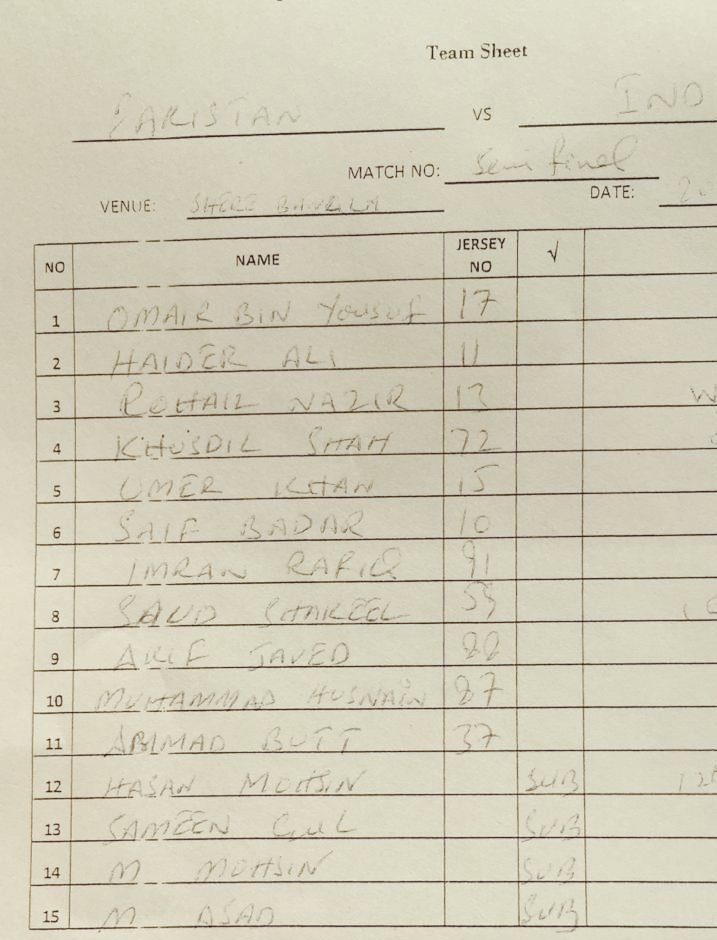 Team Sheet
PAKISTAN VS IND
MATCH NO: Semi final
VENUE: SHERE BANGLA DATE: 20
NO NAME JERSEY NO √
1 OMAIR BIN YOUSUF 17
2 HAIDER ALI 11
3 ROHAIL NAZIR 13 W
4 KHUSDIL SHAH 72
5 UMER KHAN 15
6 SAIF BADAR 10
7 IMRAN RAFIQ 91
8 SAUD SHAKEEL 59
9 ARIF JAVED 88
10 MUHAMMAD HUSNAIN 87
11 AMMAD BUTT 37
12 HASAN MOHSIN SUB 12t
13 SAMEEN GUL SUB
14 M MOHSIN SUB
15 M ASAD SUB